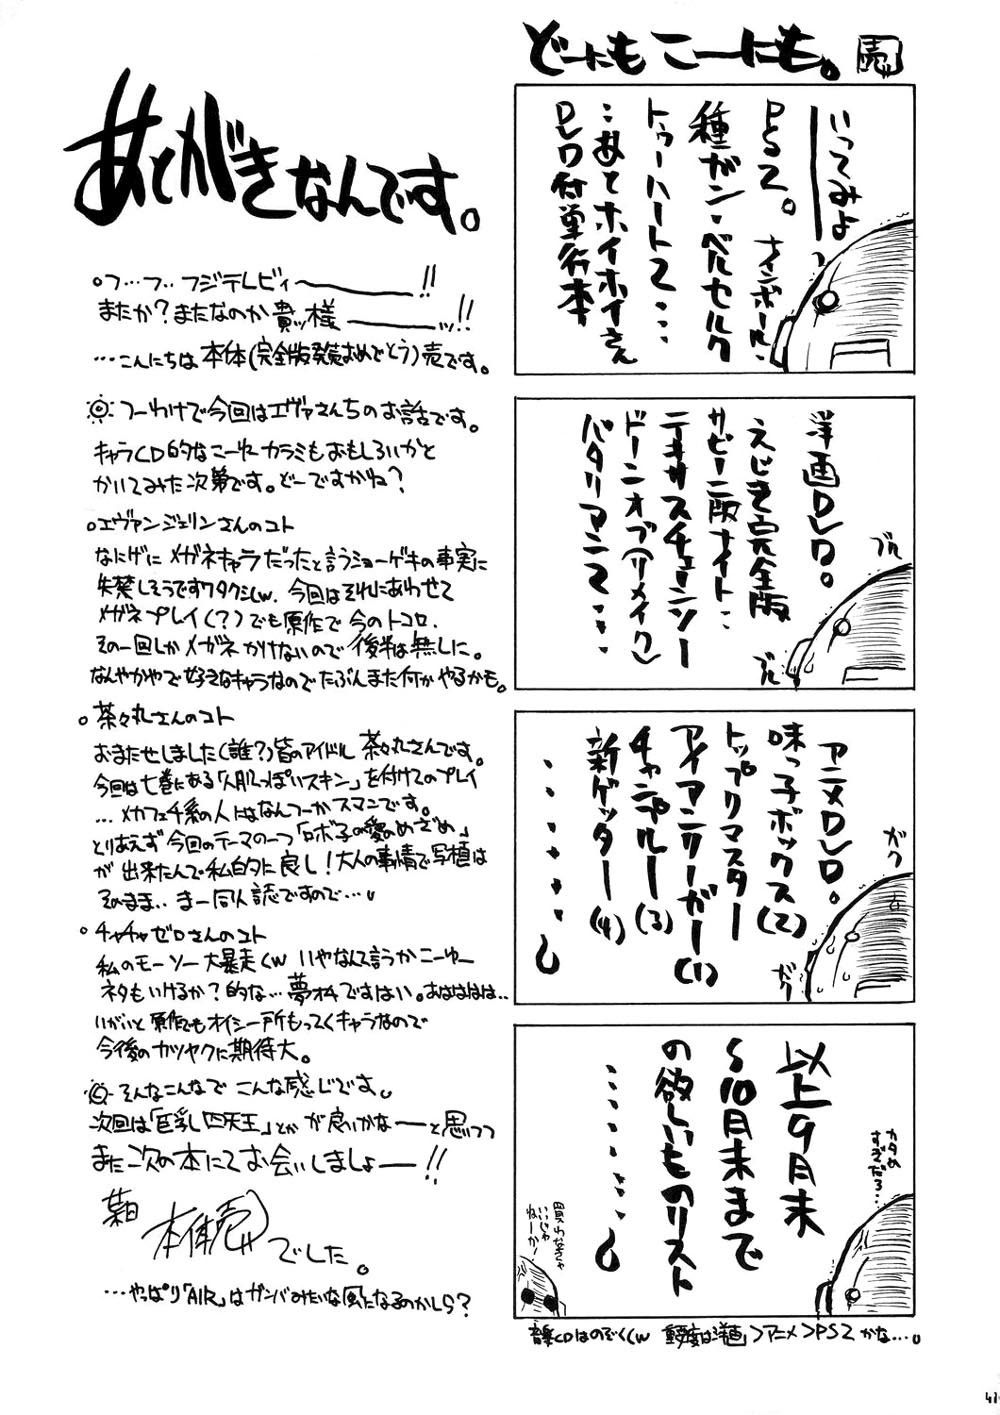 どーにも こーにも。 売
いってみよ
PS2。ナインボール・
種ガン・ベルセルク
トゥーハート2…
…あとホイホイさん
DVD付単行本
洋画DVD。
えじき完全版
サビーニ版ナイト…
テキサスチェーンソー
ドーンオブ(リメイク)
バタリアン2…
ブル
ブル
アニメDVD。
味っ子ボックス(2)
トップリマスター
アイアンリーガー(1)
チャンプルー(3)
新ゲッター(4)
ガク
ガク
以上9月末
〜10月末まで
の欲しいものリスト
カタめ
すぎだろ…
買わなきゃ
いいじゃ
ねーか!
音楽CDはのぞく(w 重要度は洋画>アニメ>PS2かな…。
あとがきなんです。
○フ…フ…フジテレビィ〜!!
またか?またなのか貴ッ様ーッ!!
…こんにちは本体(完全版発売おめでとう)売です。
つーわけで今回はエヴァさんちのお話です。
キャラCD的なこーゆーカラミもおもしろいかと
かいてみた次第です。どーですかね?
○エヴァンジェリンさんのコト
なにげにメガネキャラだったと言うショーゲキの事実に
失禁しそうですワタクシ(w. 今回はそれにあわせて
メガネプレイ(?)でも原作で今のトコロ、
その一回しかメガネかけないので後半は無しに。
なんやかやで好きなキャラなのでたぶんまた何かやるかも。
○茶々丸さんのコト
おまたせしました(誰?)皆のアイドル茶々丸さんです。
今回は七巻にある「人肌っぽいスキン」を付けてのプレイ
…メカフェチ系の人にはなんつーかスマンです。
とりあえず今回のテーマの一つ「ロボ子の愛のめざめ」
が出来たんで私的に良し!大人の事情で写植は
そのまま…まー同人誌ですので…。
○チャチャゼロさんのコト
私のモーソー大暴走(w いやなんて言うかこーゆー
ネタもいけるか?的な…夢オチですはい。あはははは…
いがいと原作でもオイシー所もってくキャラなので
今後のカツヤクに期待大。
そんなこんなでこんな感じです。
次回は「巨乳四天王」とかが良いかなーと思いつつ
また次の本にてお会いしましょー!!
本体売
でした。
…やっぱり「AIR」はガンバみたいな風になるのかしら?
41